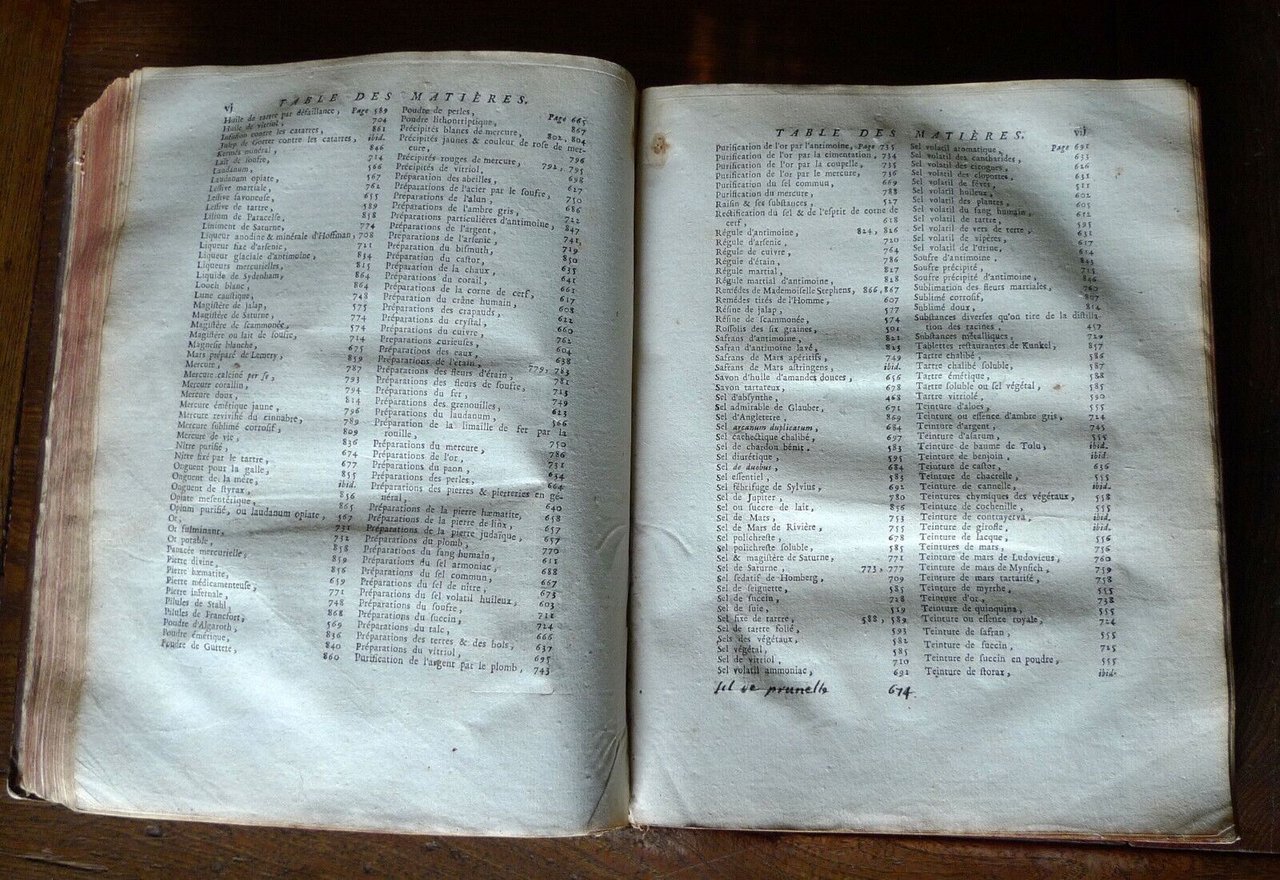 vi TABLE DES MATIÈRES.
Huile de tartre par défaillance, Page 589
Huile de vitriol, 704
Infusion contre les catarres, 861
Julep de Gorter contre les catarres, ibid.
Kermès minéral, 846
Lait de soufre, 714
Laudanum, 566
Laudanum opiate, 567
Lessive martiale, 762
Lessive savoneuse, 655
Lessive de tartre, 589
Lilium de Paracelse, 838
Liniment de Saturne, 774
Liqueur anodine & minérale d'Hoffman, 708
Liqueur fixe d'arsenic, 721
Liqueur glaciale d'antimoine, 834
Liqueurs mercurielles, 815
Liquide de Sydenham, 864
Looch blanc, 864
Lune caustique, 748
Magistère de jalap, 575
Magistère de Saturne, 774
Magistère de scammonée, 574
Magistère ou lait de soufre, 714
Magnésie blanche, 675
Mars préparé de Lemery, 859
Mercure, 787
Mercure calciné per se, 793
Mercure corallin, 794
Mercure doux, 814
Mercure émétique jaune, 796
Mercure revivifié du cinnabre, 789
Mercure sublimé corrosif, 809
Mercure de vie, 836
Nitre purifié, 674
Nitre fixé par le tartre, 677
Onguent pour la galle, 855
Onguent de la mère, ibid.
Onguent de styrax, 856
Opiate mésentérique, 865
Opium purifié, ou laudanum opiate, 567
Or, 731
Or fulminant, 732
Or potable, 858
Panacée mercurielle, 859
Pierre divine, 856
Pierre hæmatite, 659
Pierre médicamenteuse, 771
Pierre infernale, 748
Pilules de Stahl, 868
Pilules de Francfort, 569
Poudre d'Algaroth, 836
Poudre émétique, 840
Poudre de Guttete, 860
Poudre de perles, Page 665
Poudre lithontriptique, 867
Précipités blancs de mercure, 802, 804
Précipités jaunes & couleur de rose de mer-
cure, 796
Précipités rouges de mercure, 792, 795
Précipités de vitriol, 698
Préparation des abeilles, 627
Préparations de l'acier par le soufre, 750
Préparations de l'alun, 686
Préparations de l'ambre gris, 722
Préparations particulières d'antimoine, 847
Préparations de l'argent, 741
Préparations de l'arsenic, 719
Préparation du bismuth, 850
Préparation du castor, 635
Préparation de la chaux, 641
Préparations du corail, 661
Préparation de la corne de cerf, 617
Préparation du crâne humain, 608
Préparation des crapauds, 622
Préparation du crystal, 660
Préparations du cuivre, 762
Préparations curieuses, 604
Préparation des eaux, 638
Préparations de l'étain, 779, 783
Préparations des fleurs d'étain, 781
Préparations des fleurs de soufre, 713
Préparations du fer, 749
Préparation des grenouilles, 623
Préparations du laudanum, 566
Préparation de la limaille de fer par la
rouille, 750
Préparations du mercure, 786
Préparations de l'or, 731
Préparations du paon, 634
Préparations des perles, 664
Préparations des pierres & pierreries en gé-
néral, 640
Préparations de la pierre hæmatite, 658
Préparations de la pierre de linx, 657
Préparations de la pierre judaïque, 657
Préparations du plomb, 770
Préparations du sang humain, 611
Préparations du sel armoniac, 688
Préparations du sel commun, 667
Préparations du sel de nitre, 673
Préparations du sel volatil huileux, 603
Préparations du soufre, 711
Préparations du succin, 724
Préparations du talc, 666
Préparations des terres & des bois, 637
Préparations du vitriol, 695
Purification de l'argent par le plomb, 743
TABLE DES MATIÈRES. vij
Purification de l'or par l'antimoine, Page 735
Purification de l'or par la cimentation, 734
Purification de l'or par la coupelle, 735
Purification de l'or par le mercure, 736
Purification du sel commun, 669
Purification du mercure, 788
Raisin & ses substances, 517
Rectification du sel & de l'esprit de corne de
cerf, 618
Régule d'antimoine, 824, 826
Régule d'arsenic, 720
Régule de cuivre, 764
Régule d'étain, 786
Régule martial, 827
Régule martial d'antimoine, 828
Remèdes de Mademoiselle Stephens, 866, 867
Remèdes tirés de l'Homme, 607
Résine de jalap, 577
Résine de scammonée, 574
Rossolis des six graines, 501
Safran d'antimoine, 821
Safran d'antimoine lavé, 823
Safrans de Mars apéritifs, 749
Safrans de Mars astringens, ibid.
Savon d'huile d'amandes douces, 656
Savon tartareux, 678
Sel d'absynthe, 468
Sel admirable de Glauber, 671
Sel d'Angleterre, 869
Sel arcanum duplicatum, 684
Sel cathectique chalibé, 697
Sel de chardon bénit, 583
Sel diurétique, 595
Sel de duobus, 684
Sel essentiel, 583
Sel fébrifuge de Sylvius, 692
Sel de Jupiter, 780
Sel ou sucre de lait, 856
Sel de Mars, 753
Sel de Mars de Rivière, 755
Sel policreste, 678
Sel policreste soluble, 585
Sel & magistère de Saturne, 771
Sel de Saturne, 773, 777
Sel sedatif de Homberg, 709
Sel de seignette, 585
Sel de succin, 728
Sel de suie, 529
Sel fixe de tartre, 588, 589
Sel de tartre folié, 593
Sels des végétaux, 582
Sel végétal, 585
Sel de vitriol, 710
Sel volatil ammoniac, 691
sel de prunelle 674.
Sel volatil aromatique, Page 691
Sel volatil des cantharides, 633
Sel volatil des cigognes, 626
Sel volatil des cloportes, 631
Sel volatil de féves, 511
Sel volatil huileux, 602
Sel volatil des plantes, 605
Sel volatil du sang humain, 612
Sel volatil de tartre, 595
Sel volatil de vers de terre, 631
Sel volatil de vipères, 617
Sel volatil de l'urine, 614
Soufre d'antimoine, 843
Soufre précipité, 715
Soufre précipité d'antimoine,
Sublimation des fleurs martiales, 760
Sublimé corrosif, 807
Sublimé doux, 814
Substances diverses qu'on tire de la distilla-
tion des racines, 457
Substances métalliques, 729
Tablettes restaurantes de Kunkel, 857
Tartre chalibé, 586
Tartre chalibé soluble, 587
Tartre émétique, 588
Tartre soluble ou sel végétal, 585
Tartre vitriolé, 590
Teinture d'aloes, 555
Teinture ou essence d'ambre gris, 724
Teinture d'argent, 745
Teinture d'asarum, 555
Teinture de baume de Tolu, ibid.
Teinture de benjoin, ibid.
Teinture de castor, 636
Teinture de chacrelle, 555
Teinture de cannelle, ibid.
Teintures chymiques des végétaux, 558
Teinture de cochenille, 555
Teinture de contrayerva, ibid.
Teinture de girofle, ibid.
Teinture de lacque, 556
Teintures de mars, 756
Teinture de mars de Ludovicus, 760
Teinture de mars de Mynsich, 759
Teinture de mars tartarisé, 758
Teinture de myrrhe, 555
Teinture d'or, 738
Teinture de quinquina, 555
Teinture ou essence royale, 724
Teinture de safran, 555
Teinture de succin, 725
Teinture de succin en poudre, 555
Teinture de storax, ibid.